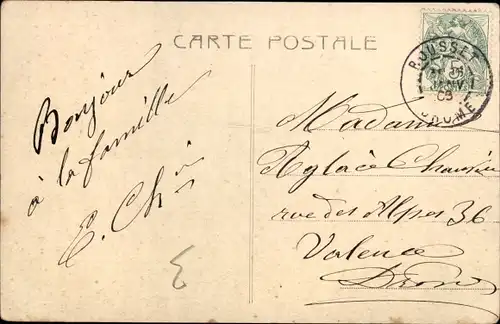 CARTE POSTALE
ROUSSET
DROME
Bonjour
à la famille
E. Ch
Madame
rue des Alpes 36
Valence
Drôme